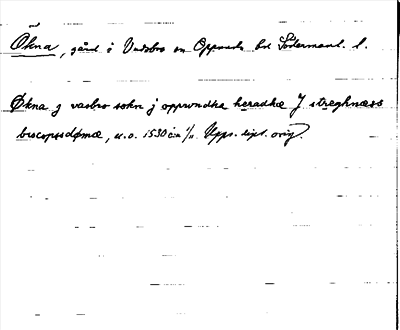 Ökna, gård i Vadsbro sn Oppunda hd Södermanl. l.
Økna j vasbro sokn j oppwndha heradhæ J streghnæss
biscopssdømæ, u.o. 1530 ca 1/11. Upps. dipl. orig.